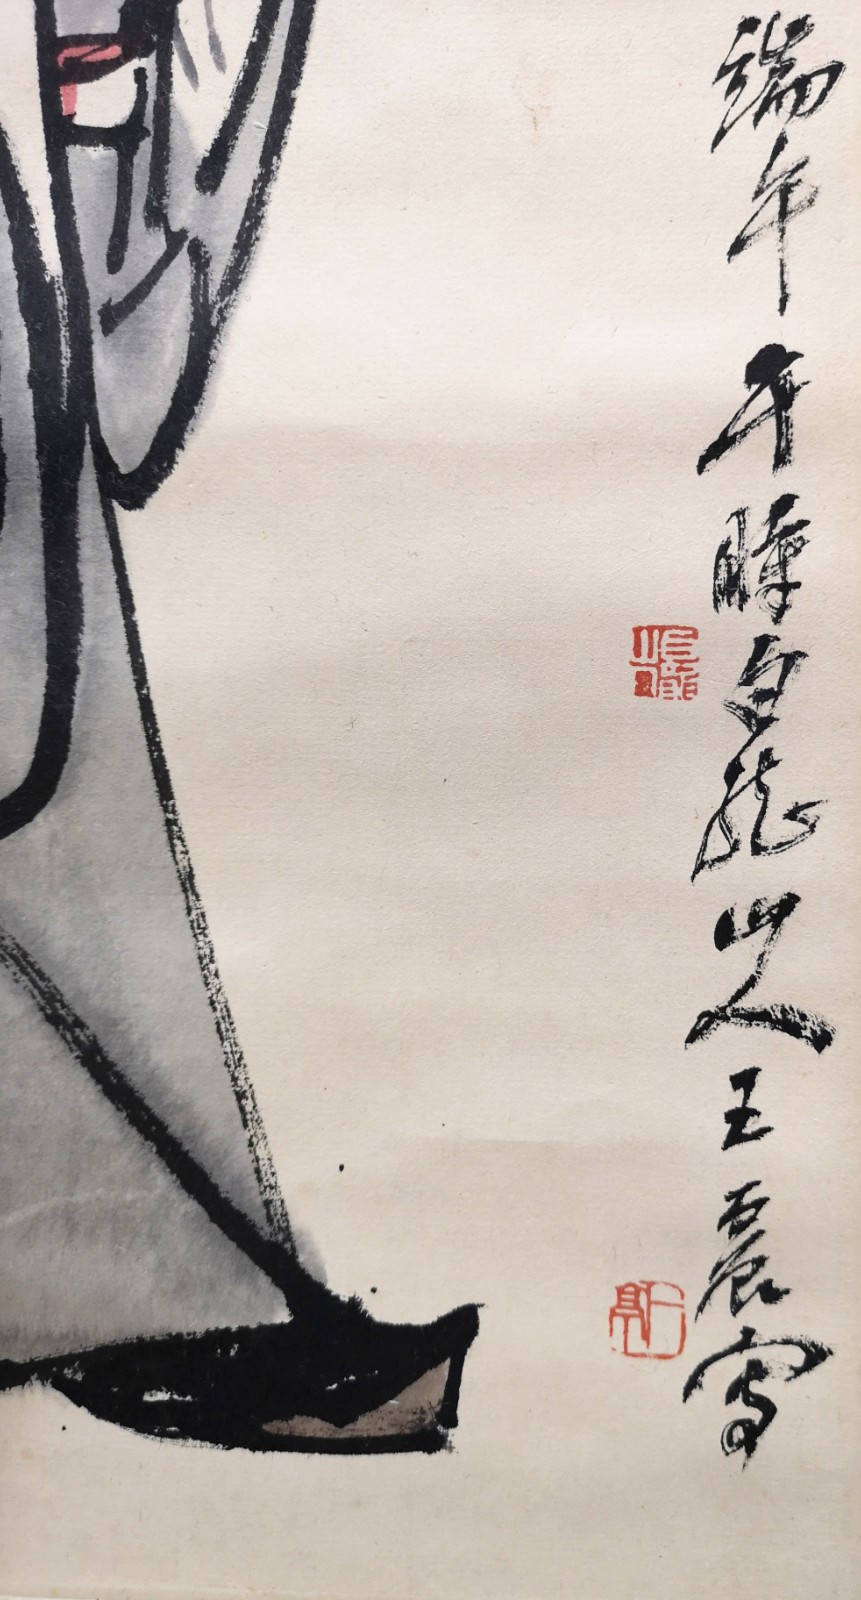 端午午時白龍山人王震寫